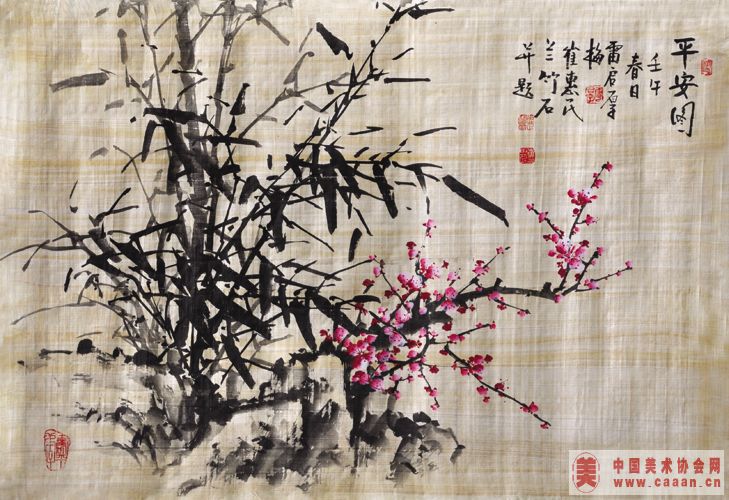 平安图
壬午
春日
雷启群
梅
崔惠民
兰竹石
并题
美
中国美术协会网
www.caaan.cn